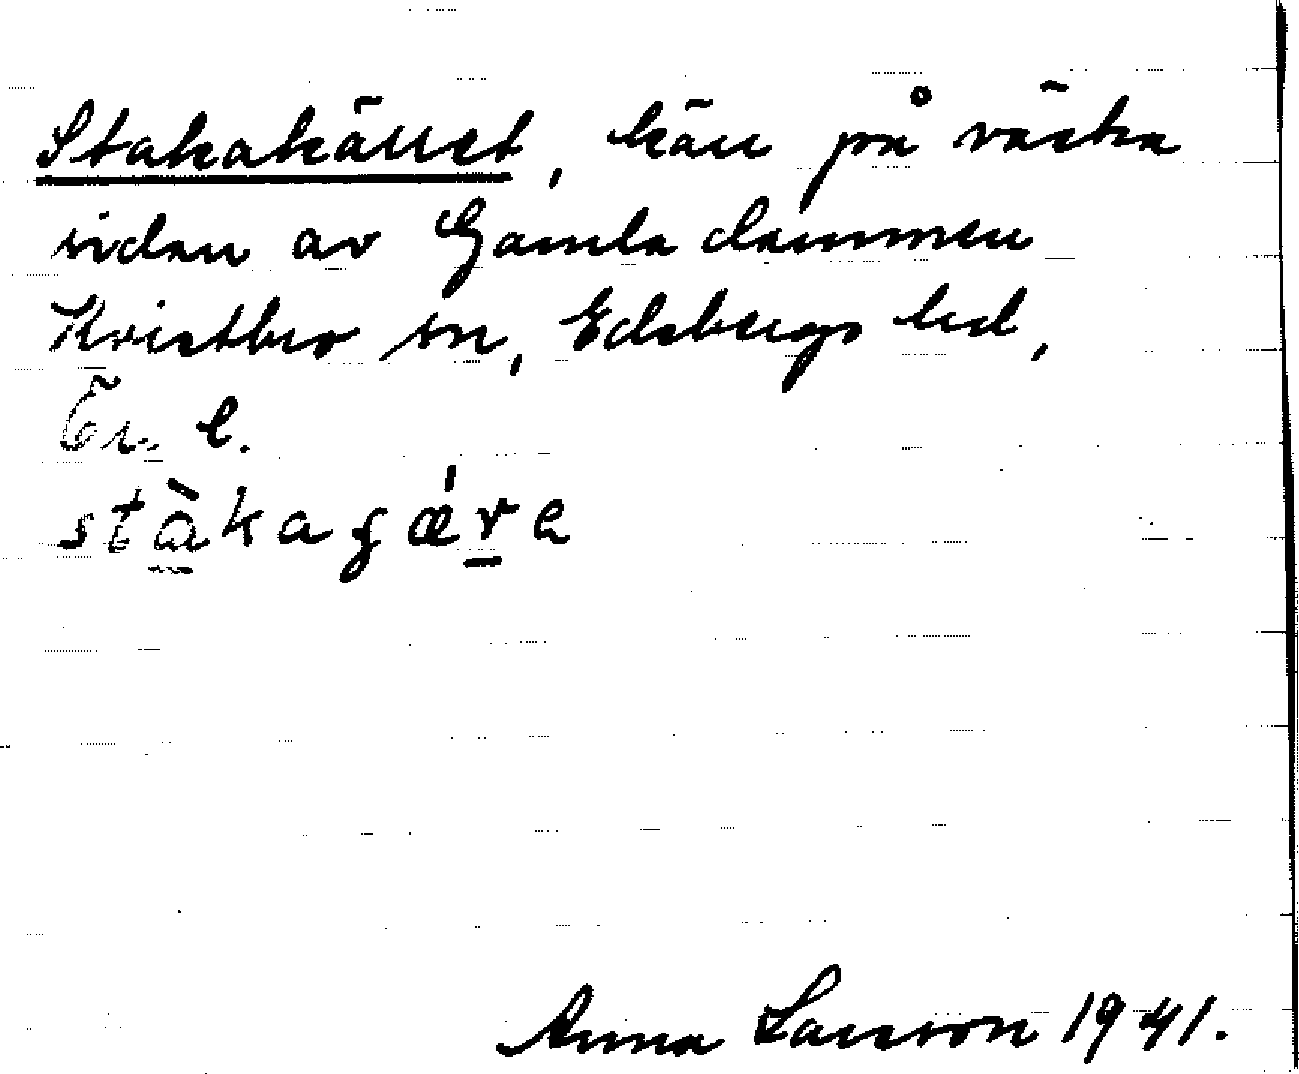 Stakakärret, kärr på västra
sidan av Gamla dammen
Kvistbro sn, Edsbergs hd,
Ör. l.
stàkaɡǽre
Anna Larsson 1941.